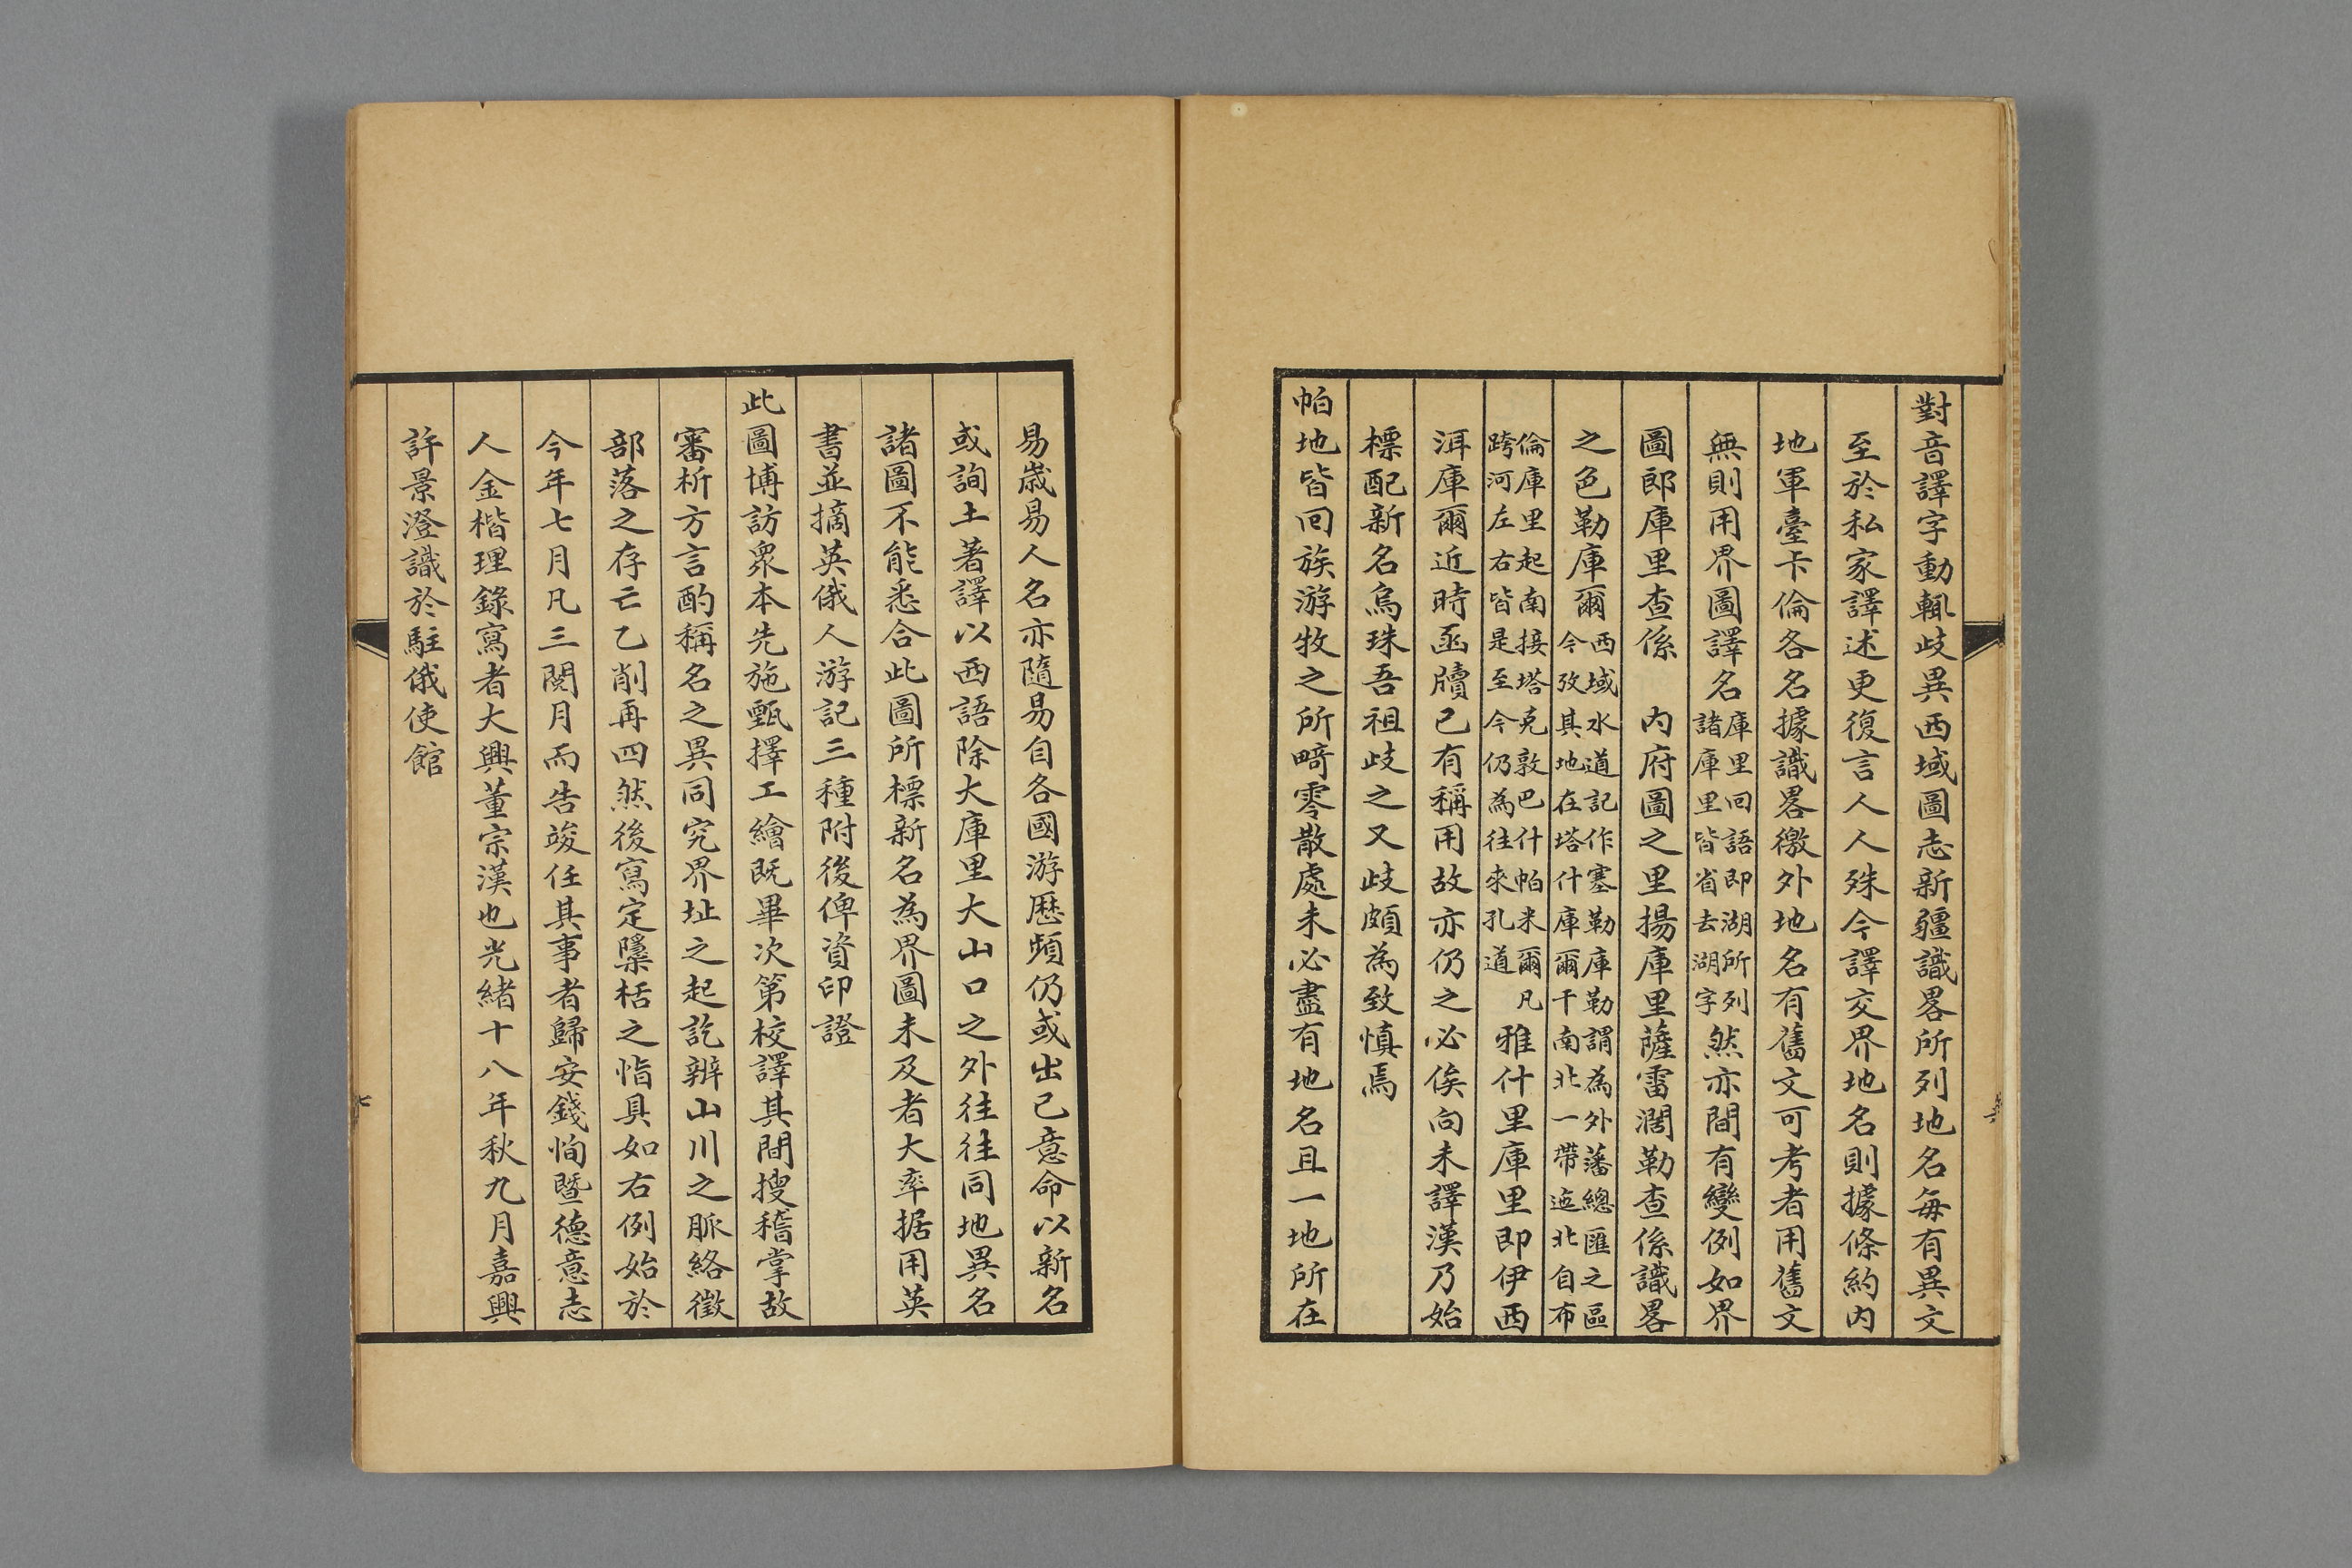 對音譯字動輒歧異西域圖志新疆識畧所列地名每有異文
至於私家譯述更復言人人殊今譯交界地名則據條約内
地軍臺卡倫各名據識畧徼外地名有舊文可考者用舊文
無則用界圖譯名庫里回語即湖所列諸庫里皆省去湖字然亦間有變例如界
圖郎庫里查係 内府圖之里揚庫里薩雷濶勒查係識畧
之色勒庫爾西域水道記作塞勒庫勒謂為外藩總匯之區今攷其地在塔什庫爾干南北一帶迤北自布
倫庫里起南接塔克敦巴什帕米爾凡跨河左右皆是至今仍為往來孔道雅什里庫里即伊西
洱庫爾近時函牘已有稱用故亦仍之必俟向未譯漢乃始
標配新名烏珠吾祖歧之又歧頗為致慎焉
帕地皆回族游牧之所畸零散處未必盡有地名且一地所在
易嵗易人名亦隨易自各國游歷頻仍或出己意命以新名
或詢土著譯以西語除大庫里大山口之外往往同地異名
諸圖不能悉合此圖所標新名為界圖未及者大率据用英
書並摘英俄人游記三種附後俾資印證
此圖博訪衆本先施甄擇工繪既畢次第校譯其間搜稽掌故
審析方言酌稱名之異同究界址之起訖辨山川之脈絡徵
部落之存亡乙削再四然後寫定隱栝之恉具如右例始於
今年七月凡三閱月而告竣任其事者歸安錢恂暨德意志
人金楷理錄寫者大興董宗漢也光緒十八年秋九月嘉興
許景澄識於駐俄使館
七